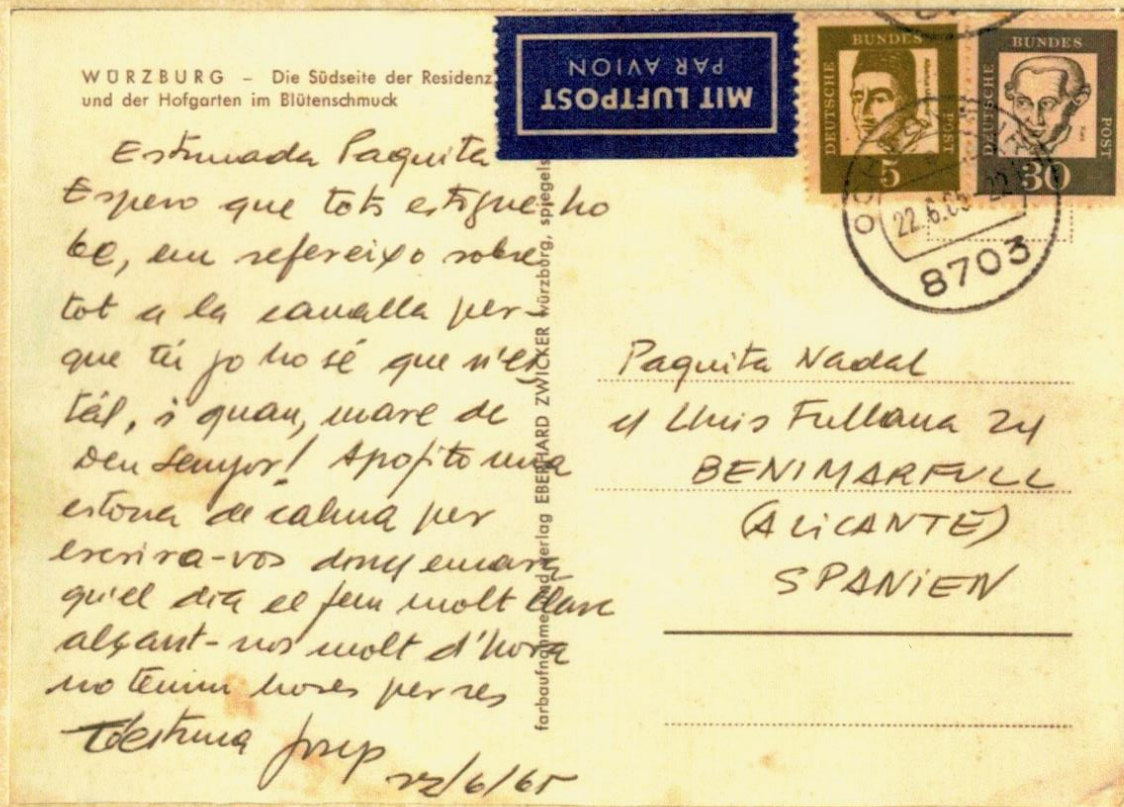 WÜRZBURG – Die Südseite der Residenz
und der Hofgarten im Blütenschmuck
MIT LUFTPOST
PAR AVION
DEUTSCHE BUNDES POST
5
DEUTSCHE BUNDES POST
30
22.6.65
8703
Estimada Paquita
Espero que tots estigueho
be, em refereixo sobre
tot a la canalla per-
que tú jo ho sé que n'es
tál, i quan, mare de
Deu Senyor! Apofito una
estona de calma per
escriva-vos donç encara
qu'el dia el fem molt llarc
alçant-nos molt d'hora
no tenim hores per res
T'estima Josep
22/6/65
farbaufnahme und verlag EBERHARD ZWICKER würzburg, spiegels
Paquita Nadal
Lluis Fullana 24
BENIMARFULL
(ALICANTE)
SPANIEN